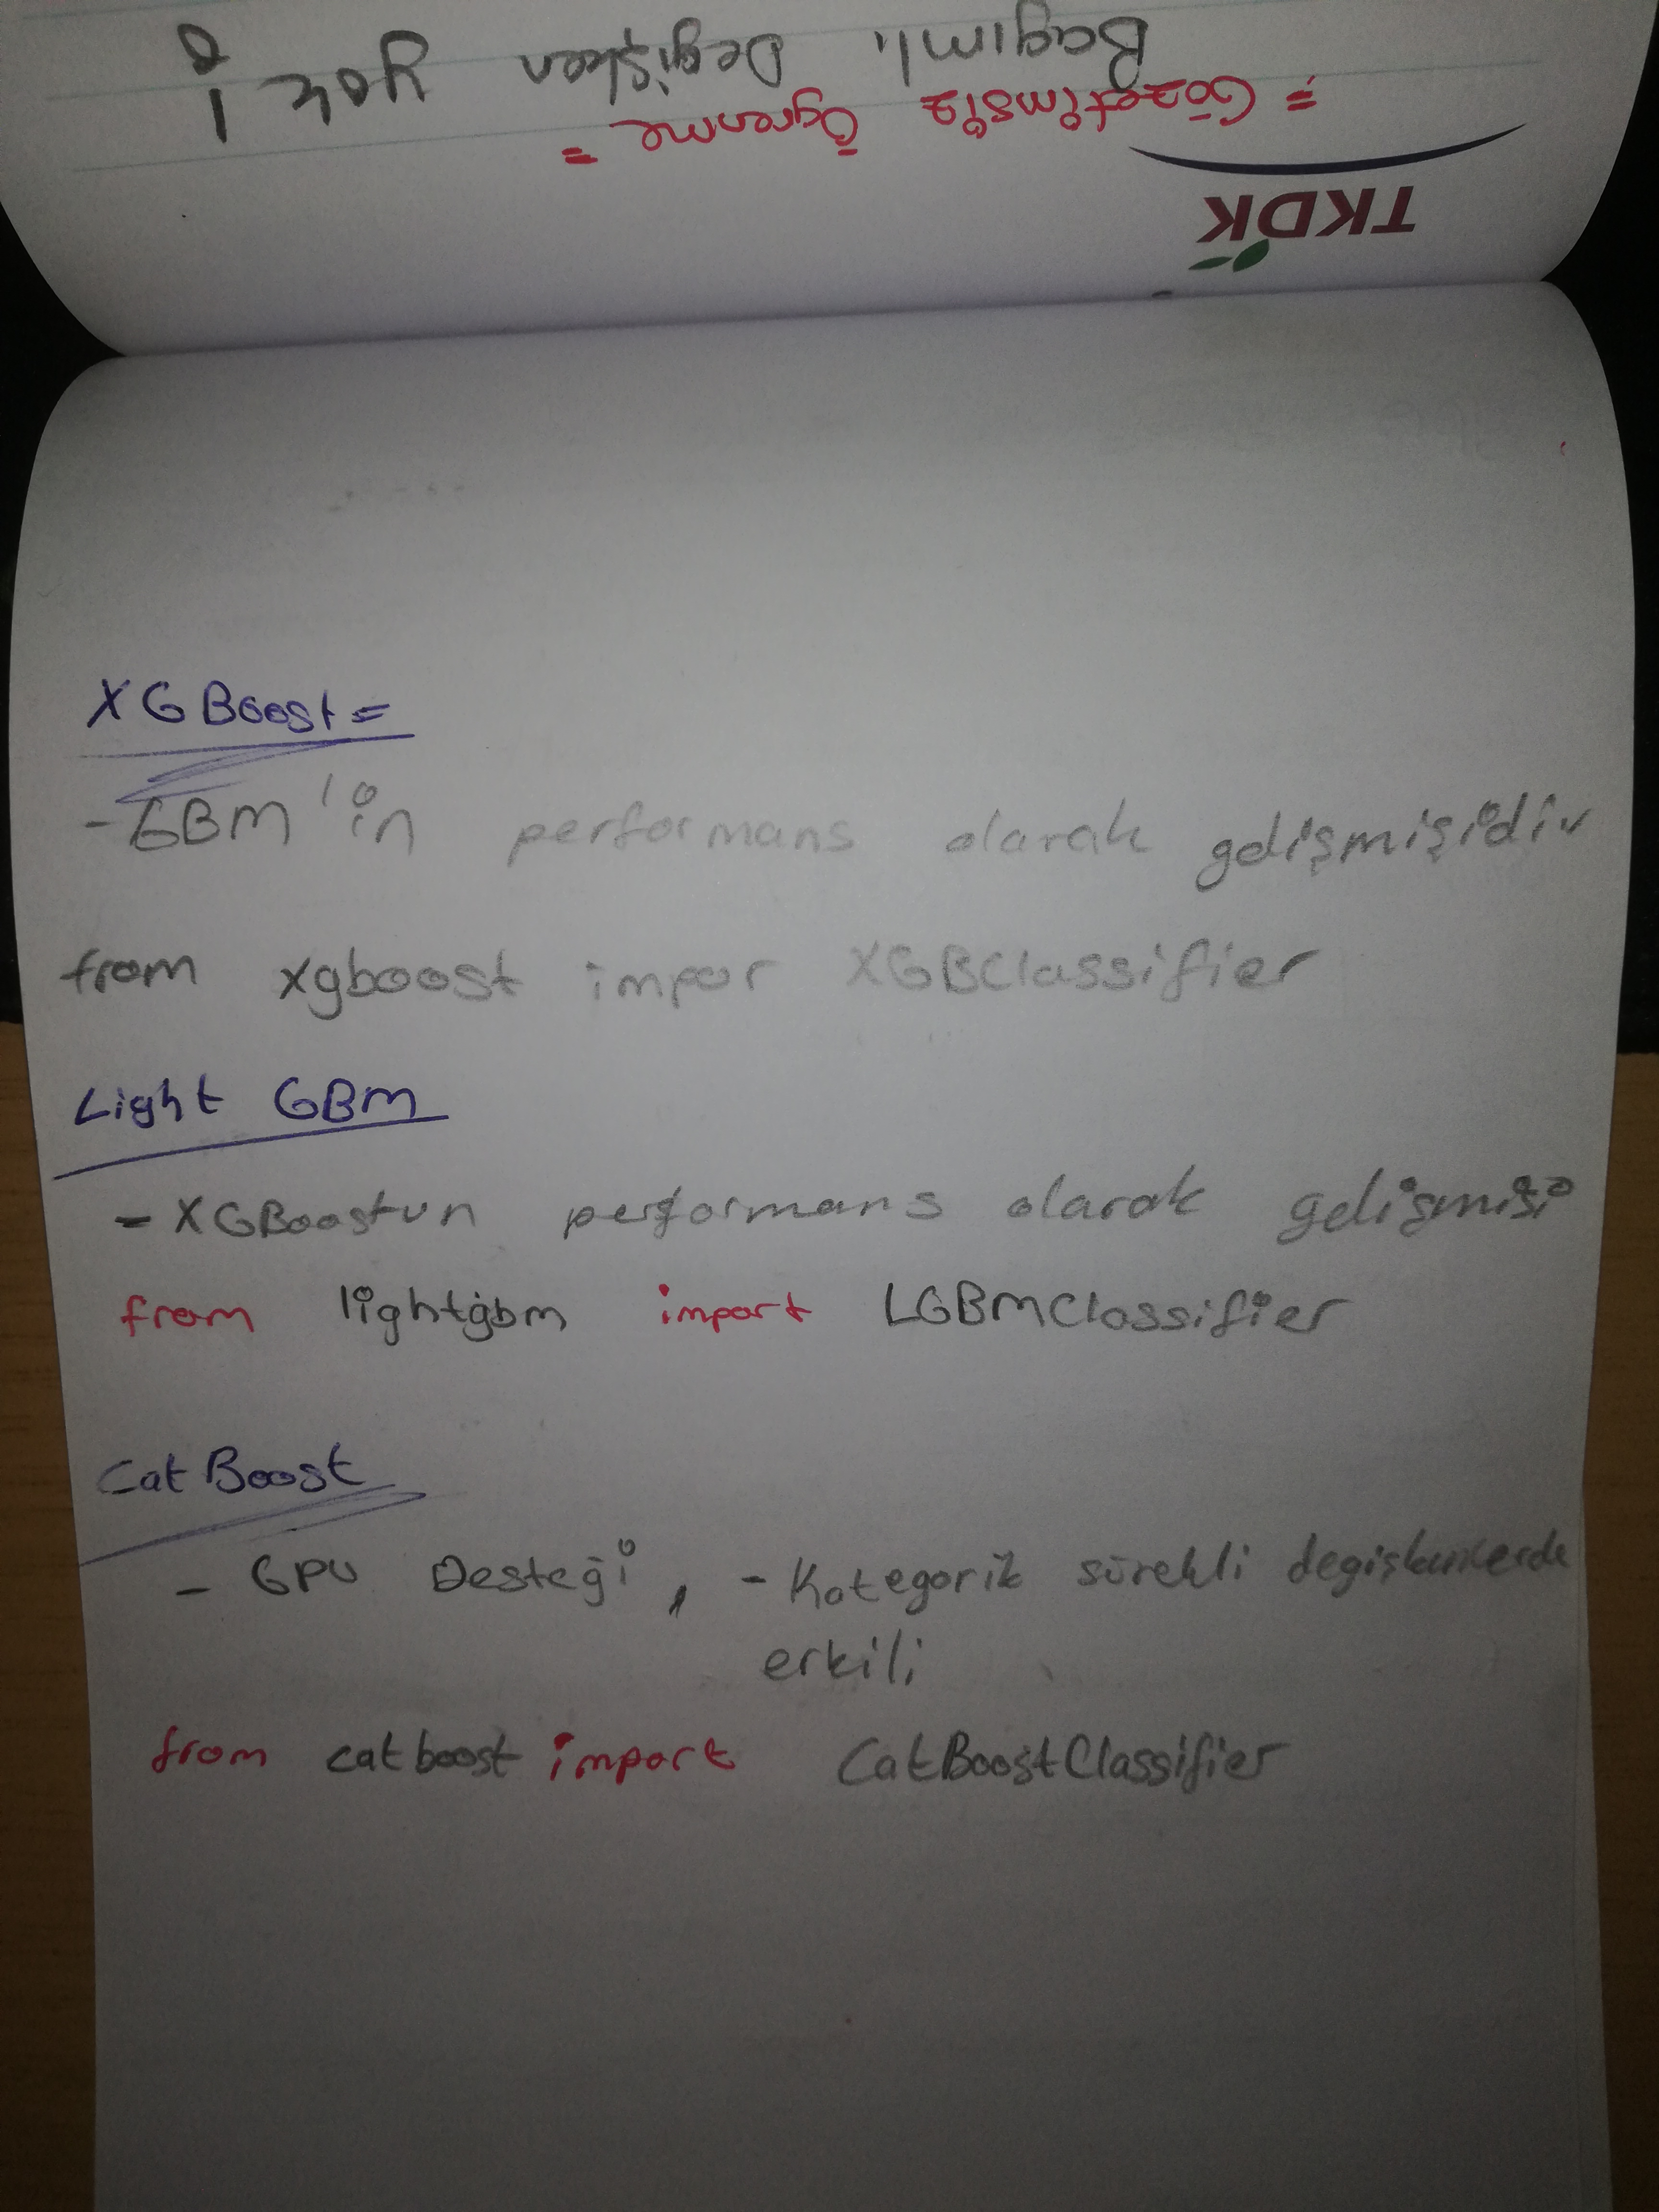 TKDK
= Gözetimsiz Ögrenme =
Bagımlı Degişken yok !
XGBoost =
- GBM'in performans olarak gelişmişidir
from xgboost impor XGBClassifier
Light GBM
- XGBoostun performans olarak gelişmişi
from lightgbm import LGBMClassifier
Cat Boost
- GPU Desteği, - Kategorik sürekli degişkenlerde
erkili
from catboost import CatBoostClassifier